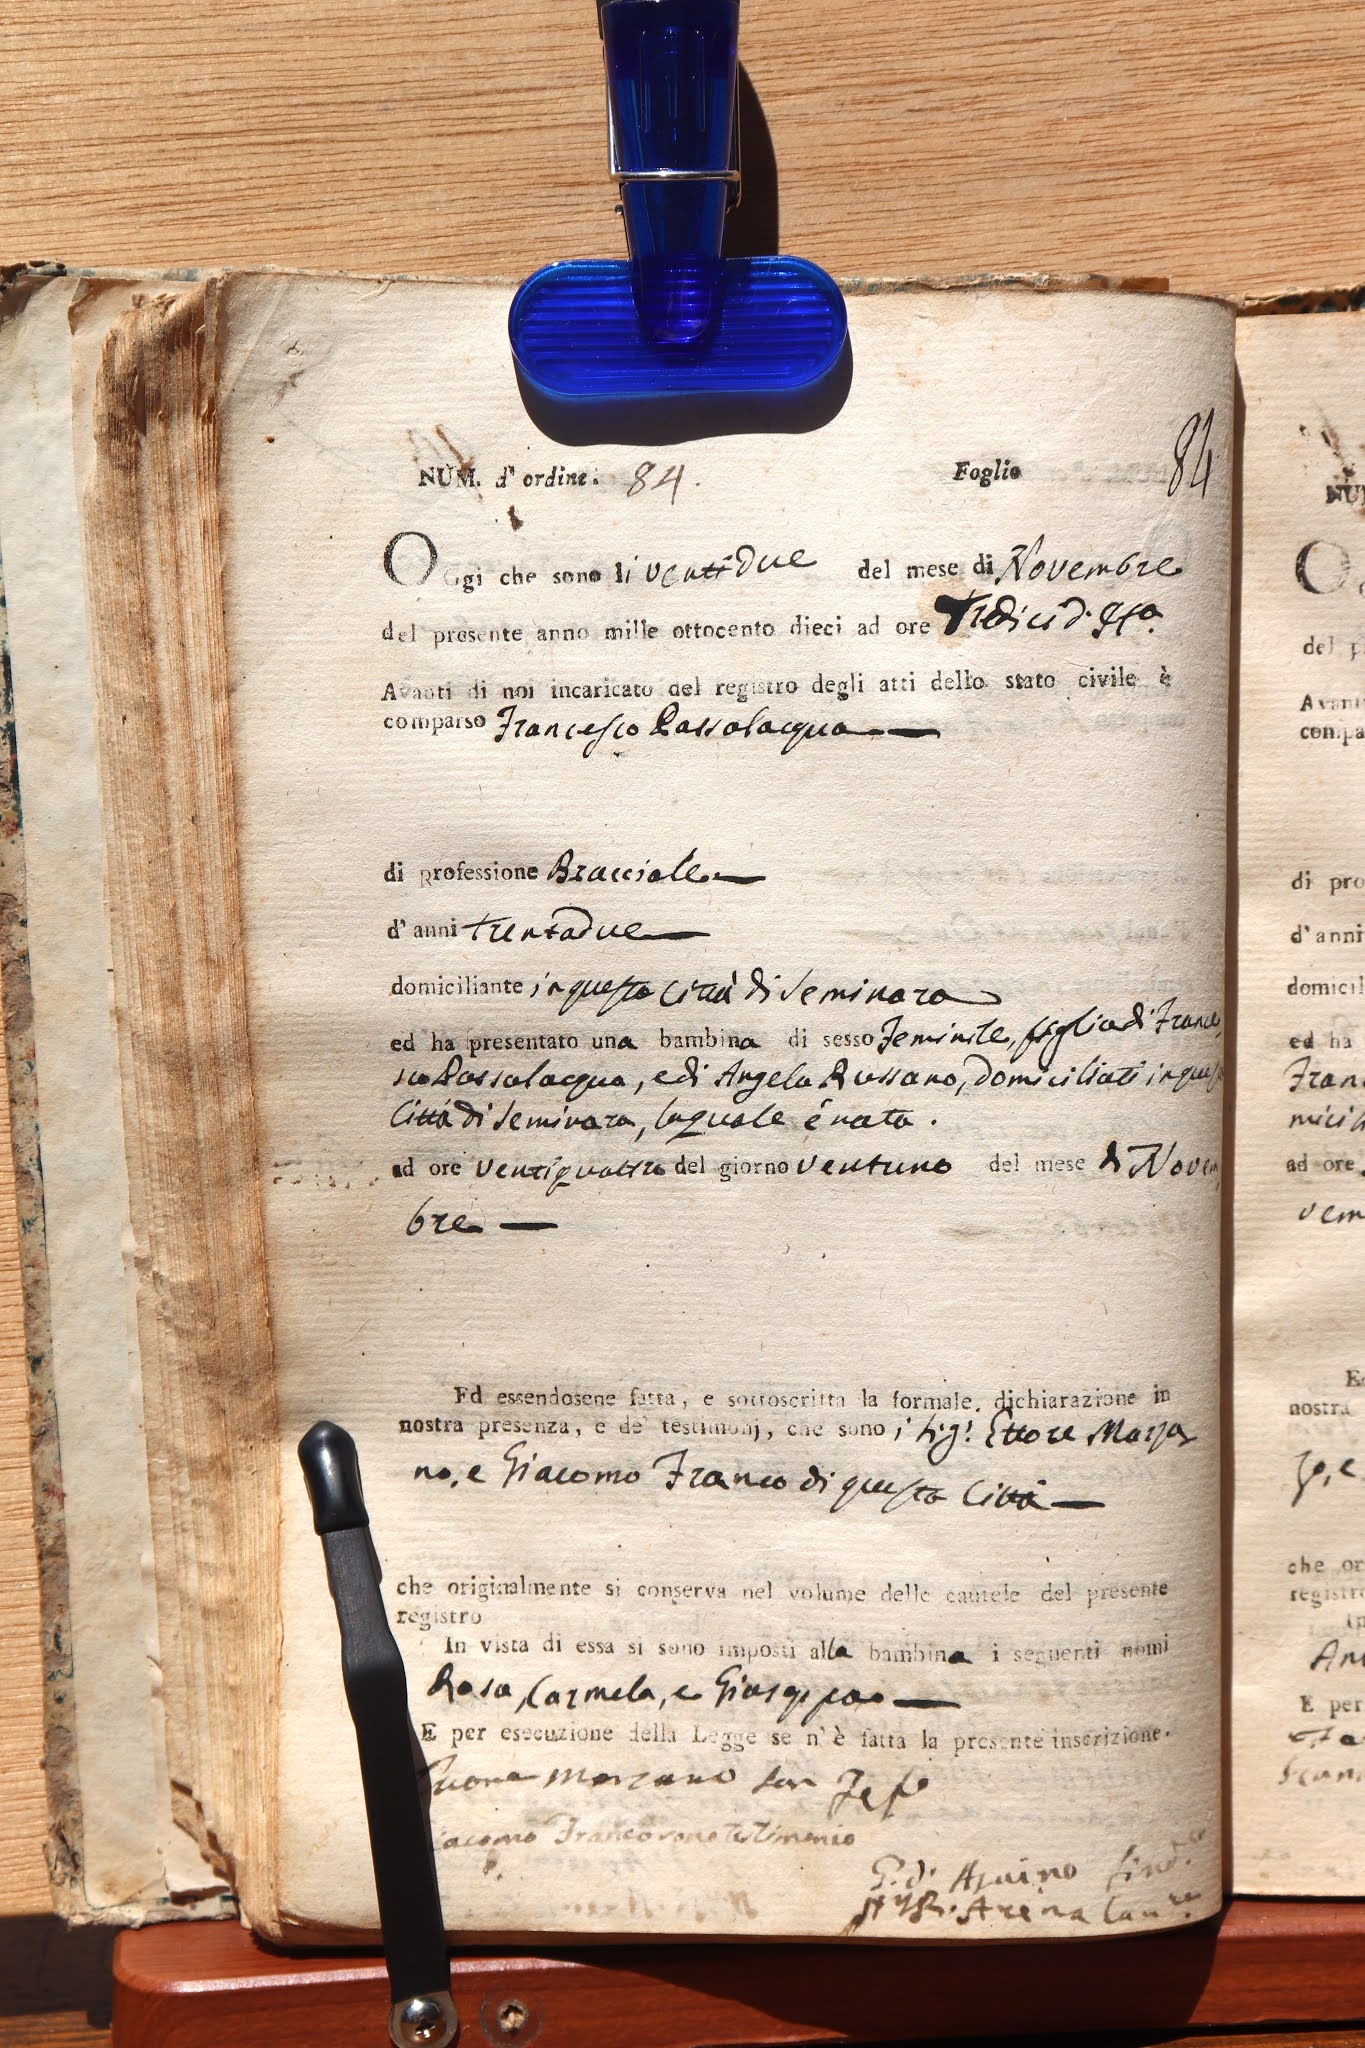 NUM. d'ordine: 84. Foglio 84
OGgi che sono li ventidue del mese di Novembre
del presente anno mille ottocento dieci ad ore Tredici d'
Avanti di noi incaricato del registro degli atti dello stato civile è
comparso Francesco Passalacqua
di professione Bracciale
d'anni trentadue
domiciliante in questa Città di Seminara
ed ha presentato una bambina di sesso Feminile, figlia di France
sco Passalacqua, e di Angela Russano, domiciliati in questa
Città di Seminara, la quale è nata.
ad ore ventiquattro del giorno ventuno del mese di Novem
bre
Ed essendosene fatta, e sottoscritta la formale dichiarazione in
nostra presenza, e de' testimonj, che sono i Sig.i Ettore Marza
no, e Giacomo Franco di questa Città
che originalmente si conserva nel volume delle cautele del presente
registro
In vista di essa si sono imposti alla bambina i seguenti nomi
Rosa, Carmela, e Giuseppa
E per esecuzione della Legge se n'è fatta la presente inscrizione.
Marzano
Giacomo Franco sono testimonio
Sind.co
Arena Canc.re
NU
O
del p
Avant
compa
di pro
d'anni
domicil
ed ha
Franc
micili
ad ore
vem
E
nostra
zo, e
che or
registro
In
An
E per